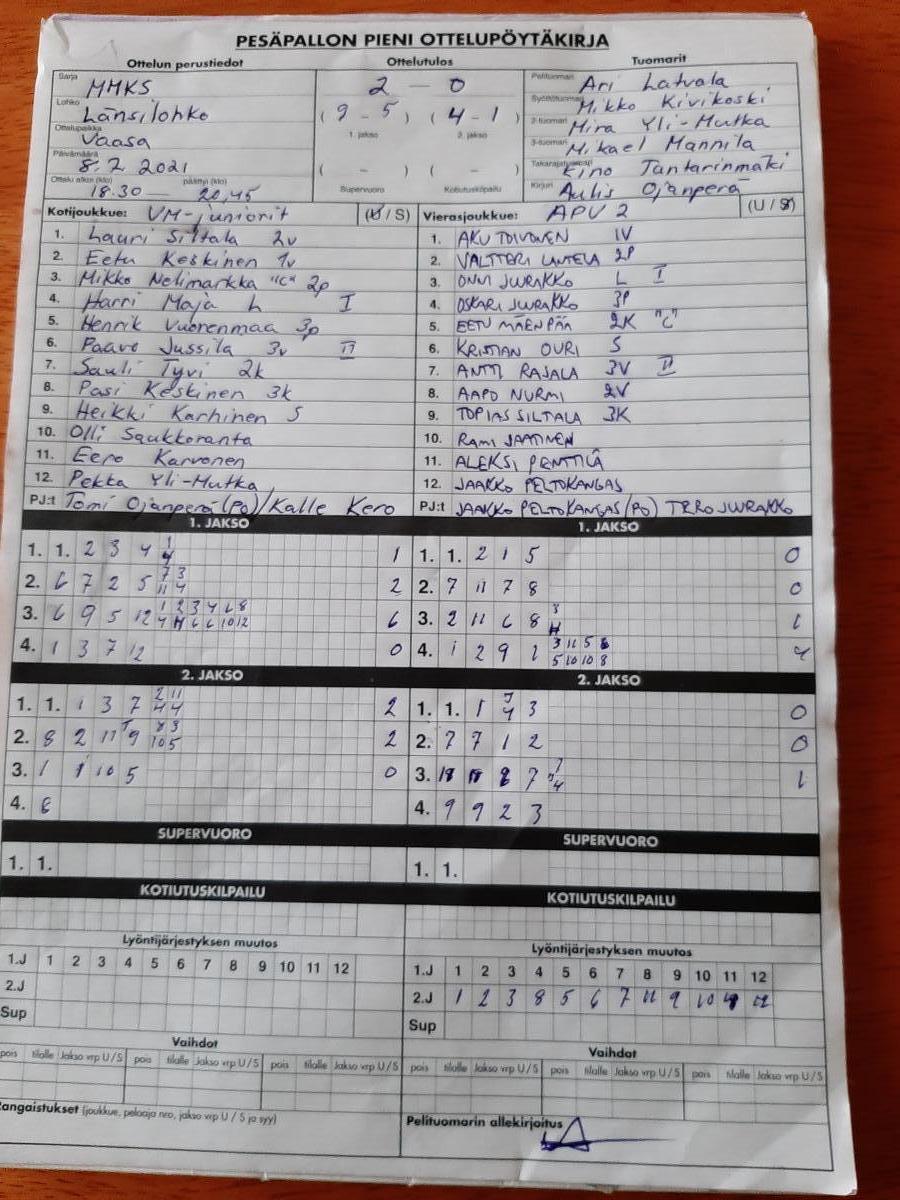 PESÄPALLON PIENI OTTELUPÖYTÄKIRJA
Ottelun perustiedot
Sarja
MMKS
Lohko
Länsilohko
Ottelupaikka
Vaasa
Päivämäärä
8.2.2021
Ottelu alkoi (klo) päättyi (klo)
18.30 — 20,45
Ottelutulos
2 — 0
(9 - 5) (4 - 1)
1. jakso 2. jakso
( - ) ( - )
Supervuoro Kotiutuskilpailu
Tuomarit
Pelituomari Ari Latvala
Syöttötuomari Mikko Kivikoski
2-tuomari Mira Yli-Hutka
3-tuomari Mikael Mannila
Takarajatuomari Eino Tantarinmäki
Kirjuri Aulis Ojanperä
Kotijoukkue: VM-juniorit (U / S)
1. Lauri Siltala 2v
2. Eetu Keskinen 1v
3. Mikko Nelimarkka "C" 2p
4. Harri Maja L I
5. Henrik Vuorenmaa 3p
6. Paavo Jussila 3v II
7. Sauli Tyvi 2k
8. Pasi Keskinen 3k
9. Heikki Karhinen S
10. Olli Saukkoranta
11. Eero Karvonen
12. Pekka Yli-Hutka
PJ:t Tomi Ojanperä (PO) / Kalle Kero
Vierasjoukkue: APV 2 (U / S)
1. AKU TOIVONEN 1V
2. VALTTERI LUHTELA 2P
3. ONNI JURAKKO L I
4. OSKARI JURAKKO 3P
5. EETU MÄENPÄÄ 2K "C"
6. KRISTIAN OURI S
7. ANTTI RAJALA 3V II
8. AAPO NURMI 2V
9. TOPIAS SILTALA 3K
10. RAMI JAATINEN
11. ALEKSI PENTTILÄ
12. JAAKKO PELTOKANGAS
PJ:t JAAKKO PELTOKANGAS (PO) TERO JURAKKO
1. JAKSO
1. 1. 2 3 4 1
4
1
2. 6 7 2 5 7 3
11 4
2
3. 6 9 5 12 1 2 3 4 6 8
4 11 6 6 10 12
6
4. 1 3 7 12 0
1. JAKSO
1. 1. 2 1 5 0
2. 7 11 7 8 0
3. 2 11 6 8 3
1
4. 1 2 9 1 3 11 5 6
5 10 10 8
4
2. JAKSO
1. 1. 1 3 7 2 11
4 4
2
2. 8 2 11 9 8 3
10 5
2
3. 1 1 10 5 0
4. 8
2. JAKSO
1. 1. 1 4 3 0
2. 7 7 1 2 0
3. 8 7 7
4
1
4. 9 9 2 3
SUPERVUORO
1. 1.
SUPERVUORO
1. 1.
KOTIUTUSKILPAILU
KOTIUTUSKILPAILU
Lyöntijärjestyksen muutos
1.J 1 2 3 4 5 6 7 8 9 10 11 12
2.J
Sup
Lyöntijärjestyksen muutos
1.J 1 2 3 4 5 6 7 8 9 10 11 12
2.J 1 2 3 8 5 6 7 11 9 10 4 12
Sup
Vaihdot
pois tilalle Jakso vrp U / S pois tilalle Jakso vrp U / S pois tilalle Jakso vrp U / S
Vaihdot
pois tilalle Jakso vrp U / S pois tilalle Jakso vrp U / S pois tilalle Jakso vrp U / S
Rangaistukset (joukkue, pelaaja nro, jakso vrp U / S ja syy)
Pelituomarin allekirjoitus